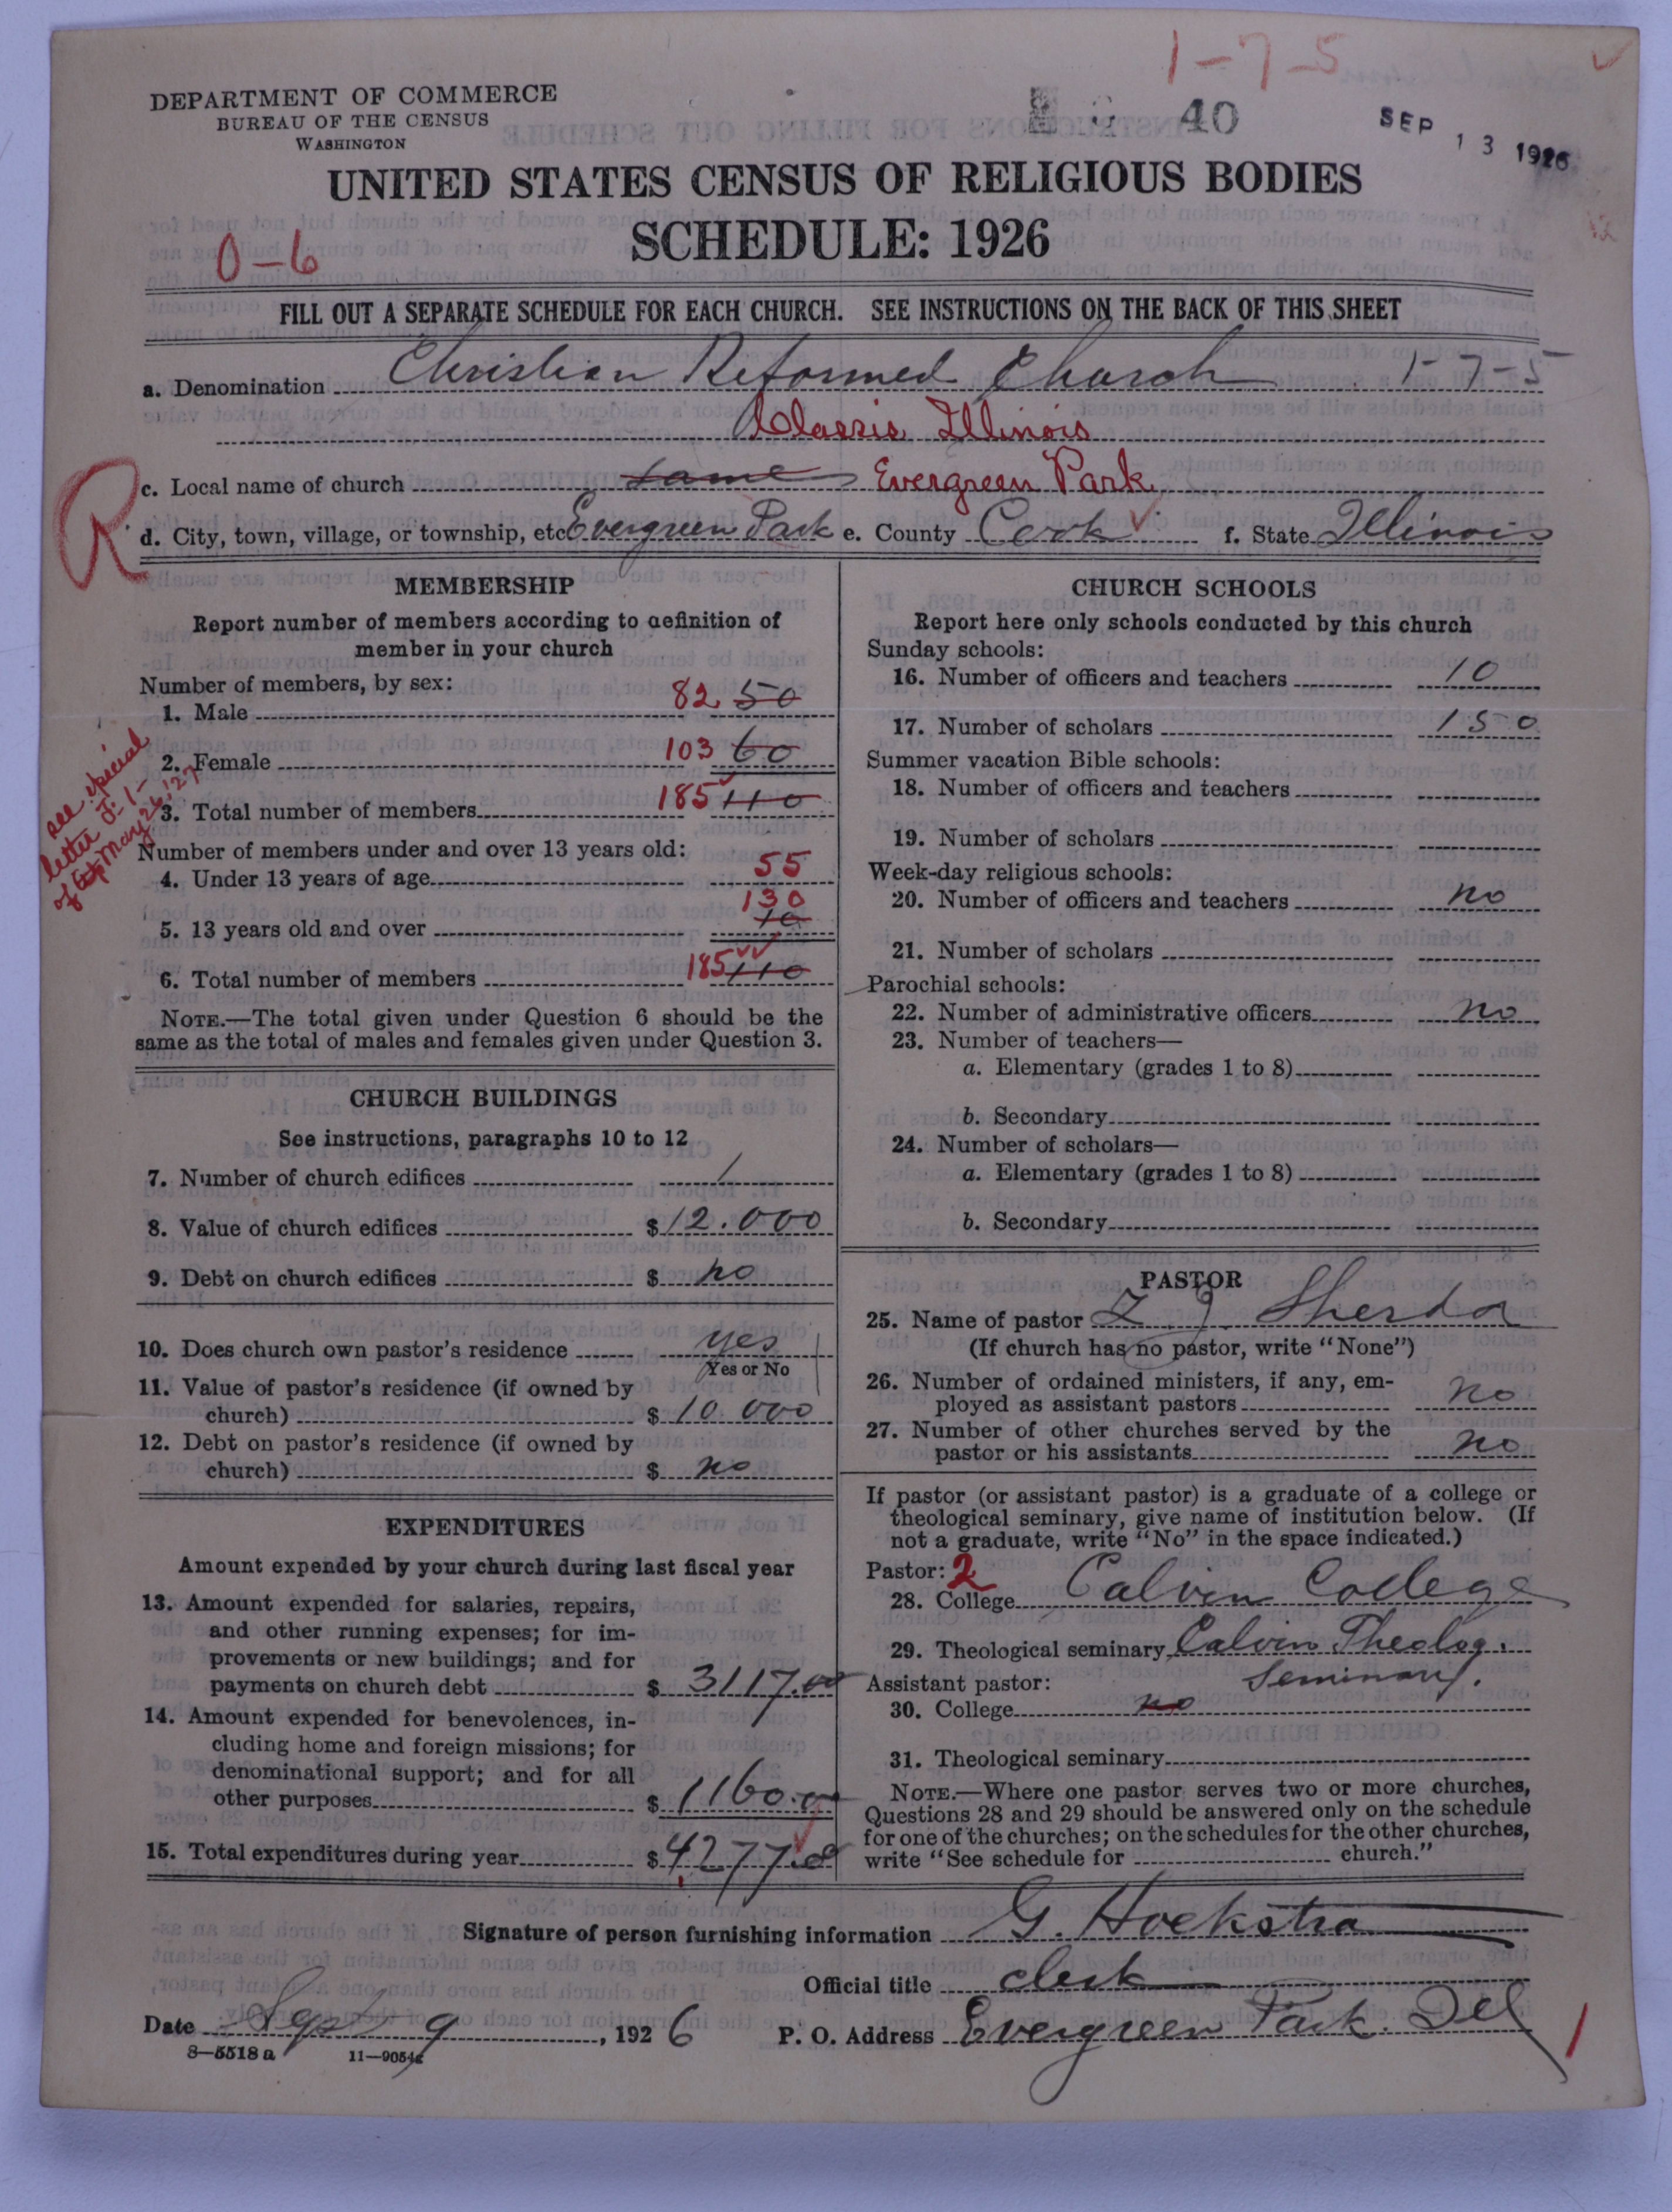 1-7-5
DEPARTMENT OF COMMERCE
BUREAU OF THE CENSUS
WASHINGTON
40
SEP 13 1926
UNITED STATES CENSUS OF RELIGIOUS BODIES
SCHEDULE: 1926
0-6
FILL OUT A SEPARATE SCHEDULE FOR EACH CHURCH. SEE INSTRUCTIONS ON THE BACK OF THIS SHEET
a. Denomination Christian Reformed Church 1-7-5
Classis Illinois
R
c. Local name of church same Evergreen Park
d. City, town, village, or township, etc Evergreen Park e. County Cook f. State Illinois
MEMBERSHIP
Report number of members according to definition of
member in your church
Number of members, by sex:
1. Male 82 50
2. Female 103 60
3. Total number of members 185 110
see special
letter J. 1-
of May 26, '27
Number of members under and over 13 years old:
4. Under 13 years of age 55
130
5. 13 years old and over 10
6. Total number of members 185 110
NOTE.—The total given under Question 6 should be the
same as the total of males and females given under Question 3.
CHURCH BUILDINGS
See instructions, paragraphs 10 to 12
7. Number of church edifices 1
8. Value of church edifices $ 12.000
9. Debt on church edifices $ no
10. Does church own pastor's residence yes
Yes or No
11. Value of pastor's residence (if owned by
church) $ 10 000
12. Debt on pastor's residence (if owned by
church) $ no
EXPENDITURES
Amount expended by your church during last fiscal year
13. Amount expended for salaries, repairs,
and other running expenses; for im-
provements or new buildings; and for
payments on church debt $ 3117.00
14. Amount expended for benevolences, in-
cluding home and foreign missions; for
denominational support; and for all
other purposes $ 1160.0
15. Total expenditures during year $ 4277.0
CHURCH SCHOOLS
Report here only schools conducted by this church
Sunday schools:
16. Number of officers and teachers 10
17. Number of scholars 150
Summer vacation Bible schools:
18. Number of officers and teachers
19. Number of scholars
Week-day religious schools:
20. Number of officers and teachers no
21. Number of scholars
Parochial schools:
22. Number of administrative officers no
23. Number of teachers—
a. Elementary (grades 1 to 8)
b. Secondary
24. Number of scholars—
a. Elementary (grades 1 to 8)
b. Secondary
PASTOR
25. Name of pastor Z J Sherda
(If church has no pastor, write "None")
26. Number of ordained ministers, if any, em-
ployed as assistant pastors no
27. Number of other churches served by the
pastor or his assistants no
If pastor (or assistant pastor) is a graduate of a college or
theological seminary, give name of institution below. (If
not a graduate, write "No" in the space indicated.)
Pastor: 2
28. College Calvin College
29. Theological seminary Calvin Theolog.
Seminary.
Assistant pastor:
30. College no
31. Theological seminary
NOTE.—Where one pastor serves two or more churches,
Questions 28 and 29 should be answered only on the schedule
for one of the churches; on the schedules for the other churches,
write "See schedule for church."
Signature of person furnishing information G. Hoekstra
Official title clerk
Date Sept 9, 1926 P. O. Address Evergreen Park. Ill
8—5518 a 11—9054